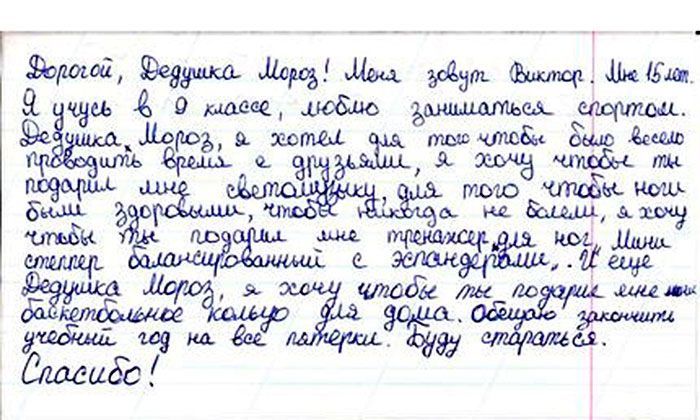 Дорогой, Дедушка Мороз! Меня зовут Виктор. Мне 15 лет.
Я учусь в 9 классе, люблю заниматься спортом.
Дедушка Мороз, я хотел для того чтобы было весело
проводить время с друзьями, я хочу чтобы ты
подарил мне светомузыку, для того чтобы ноги
были здоровыми, чтобы никогда не болели, я хочу
чтобы ты подарил мне тренажсер для ног „Мини
степпер балансированный с эспандерами„. И еще
Дедушка Мороз, я хочу чтобы ты подарил мне
баскетбольное кольцо для дома. Обещаю закончить
учебный год на все пятерки. Буду стараться.
Спасибо!